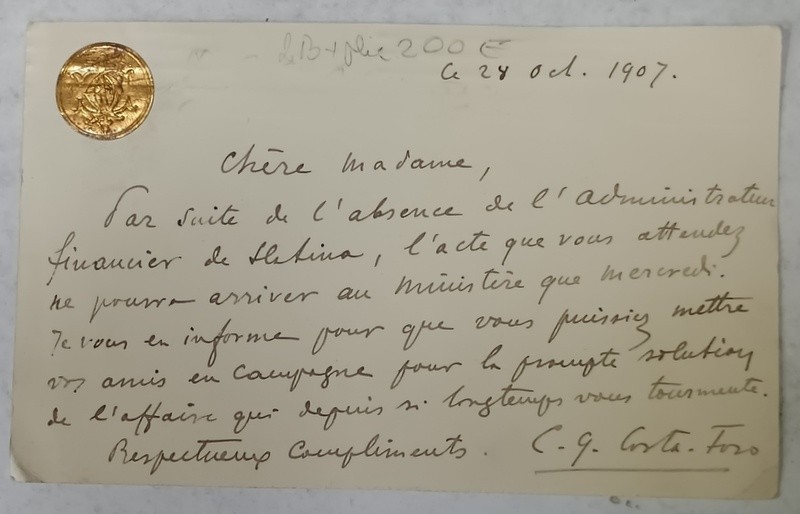 200 E
ce 28 Oct. 1907.
Chère Madame,
Par suite de l'absence de l'administrateur
financier de Slatina, l'acte que vous attendez
ne pourra arriver au ministère que mercredi.
Je vous en informe pour que vous puissiez mettre
vos amis en campagne pour la prompte solution
de l'affaire qui depuis si longtemps vous tourmente.
Respectueux compliments. C. G. Costa-Foro